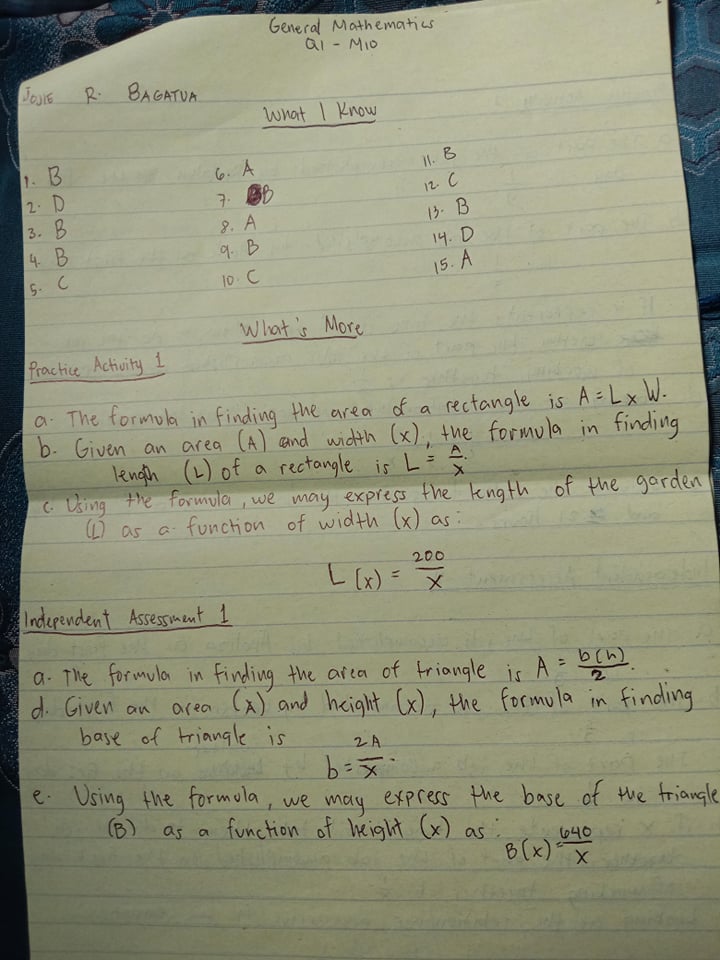 General Mathematics
Q1 - M10
JOVIE R. BAGATUA
What I Know
1. B
2. D
3. B
4. B
5. C
6. A
7. B
8. A
9. B
10. C
11. B
12. C
13. B
14. D
15. A
What's More
Practice Activity 1
a. The formula in finding the area of a rectangle is A = L x W.
b. Given an area (A) and width (x), the formula in finding
length (L) of a rectangle is L = A/x.
c. Using the formula, we may express the length of the garden
(L) as a function of width (x) as:
L(x) = 200/x
Independent Assessment 1
a. The formula in finding the area of triangle is A = b(h)/2.
d. Given an area (A) and height (x), the formula in finding
base of triangle is
b = 2A/x.
e. Using the formula, we may express the base of the triangle
(B) as a function of height (x) as:
B(x) = 640/x